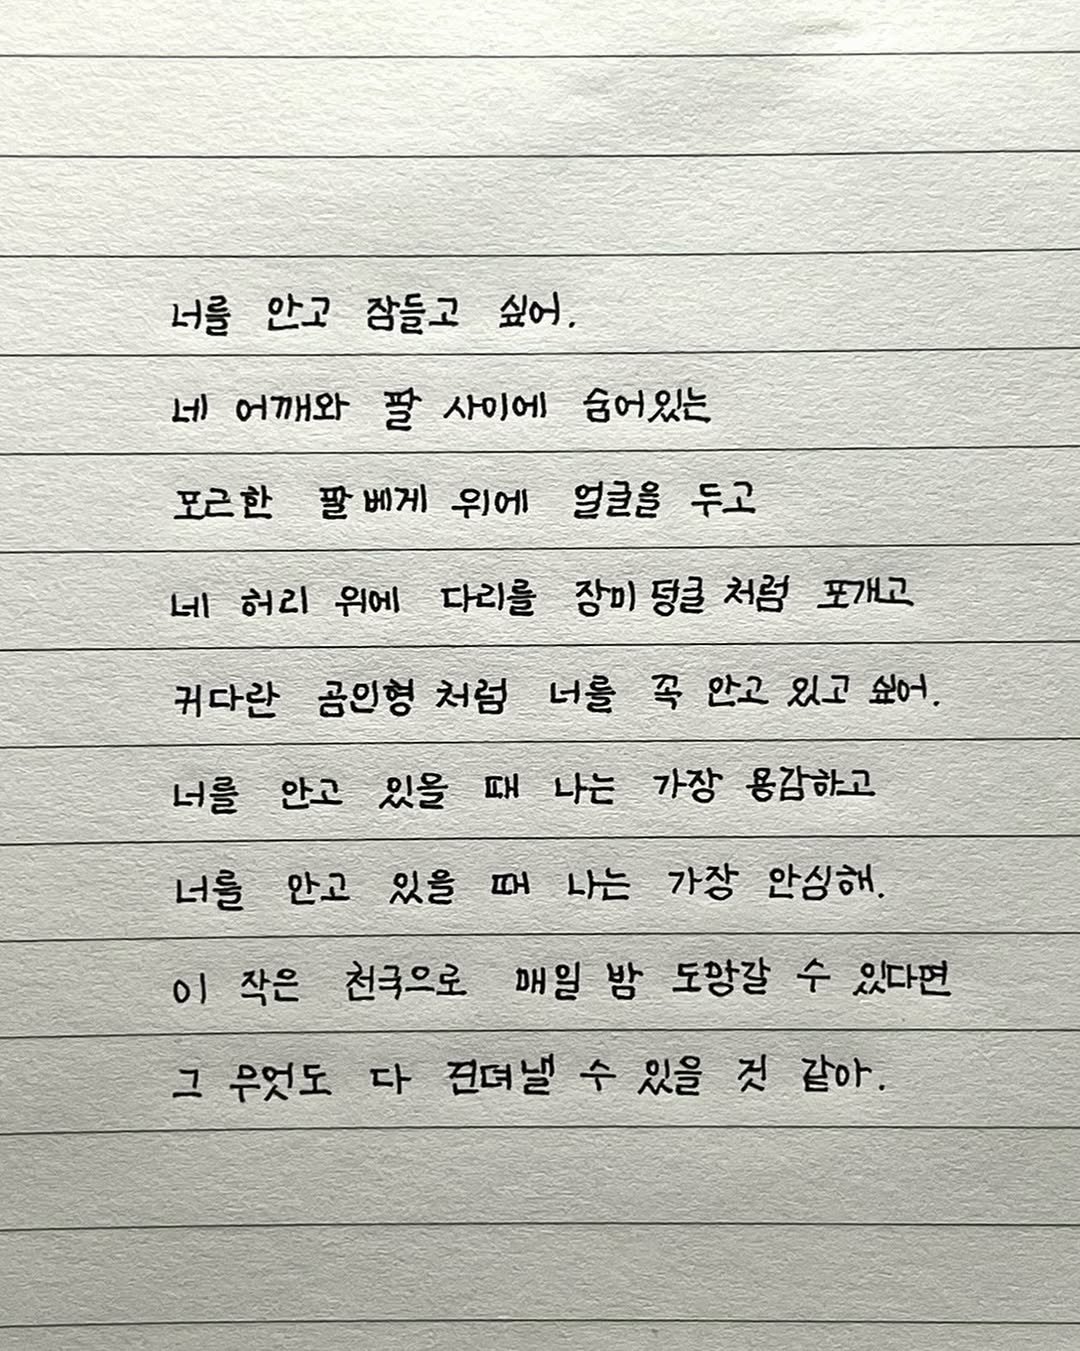 너를 안고 잠들고 싶어.
네 어깨와 팔 사이에 숨어있는
포근한 팔베게 위에 얼글을 두고
네 허리 위에 다리를 장미 덩굴 처럼 포개고
커다란 곰인형 처럼 너를 꼭 안고 있고 싶어.
너를 안고 있을 때 나는 가장 용감하고
너를 안고 있을 때 나는 가장 안심해.
이 작은 천국으로 매일 밤 도망갈 수 있다면
그 무엇도 다 견뎌낼 수 있을 것 같아.